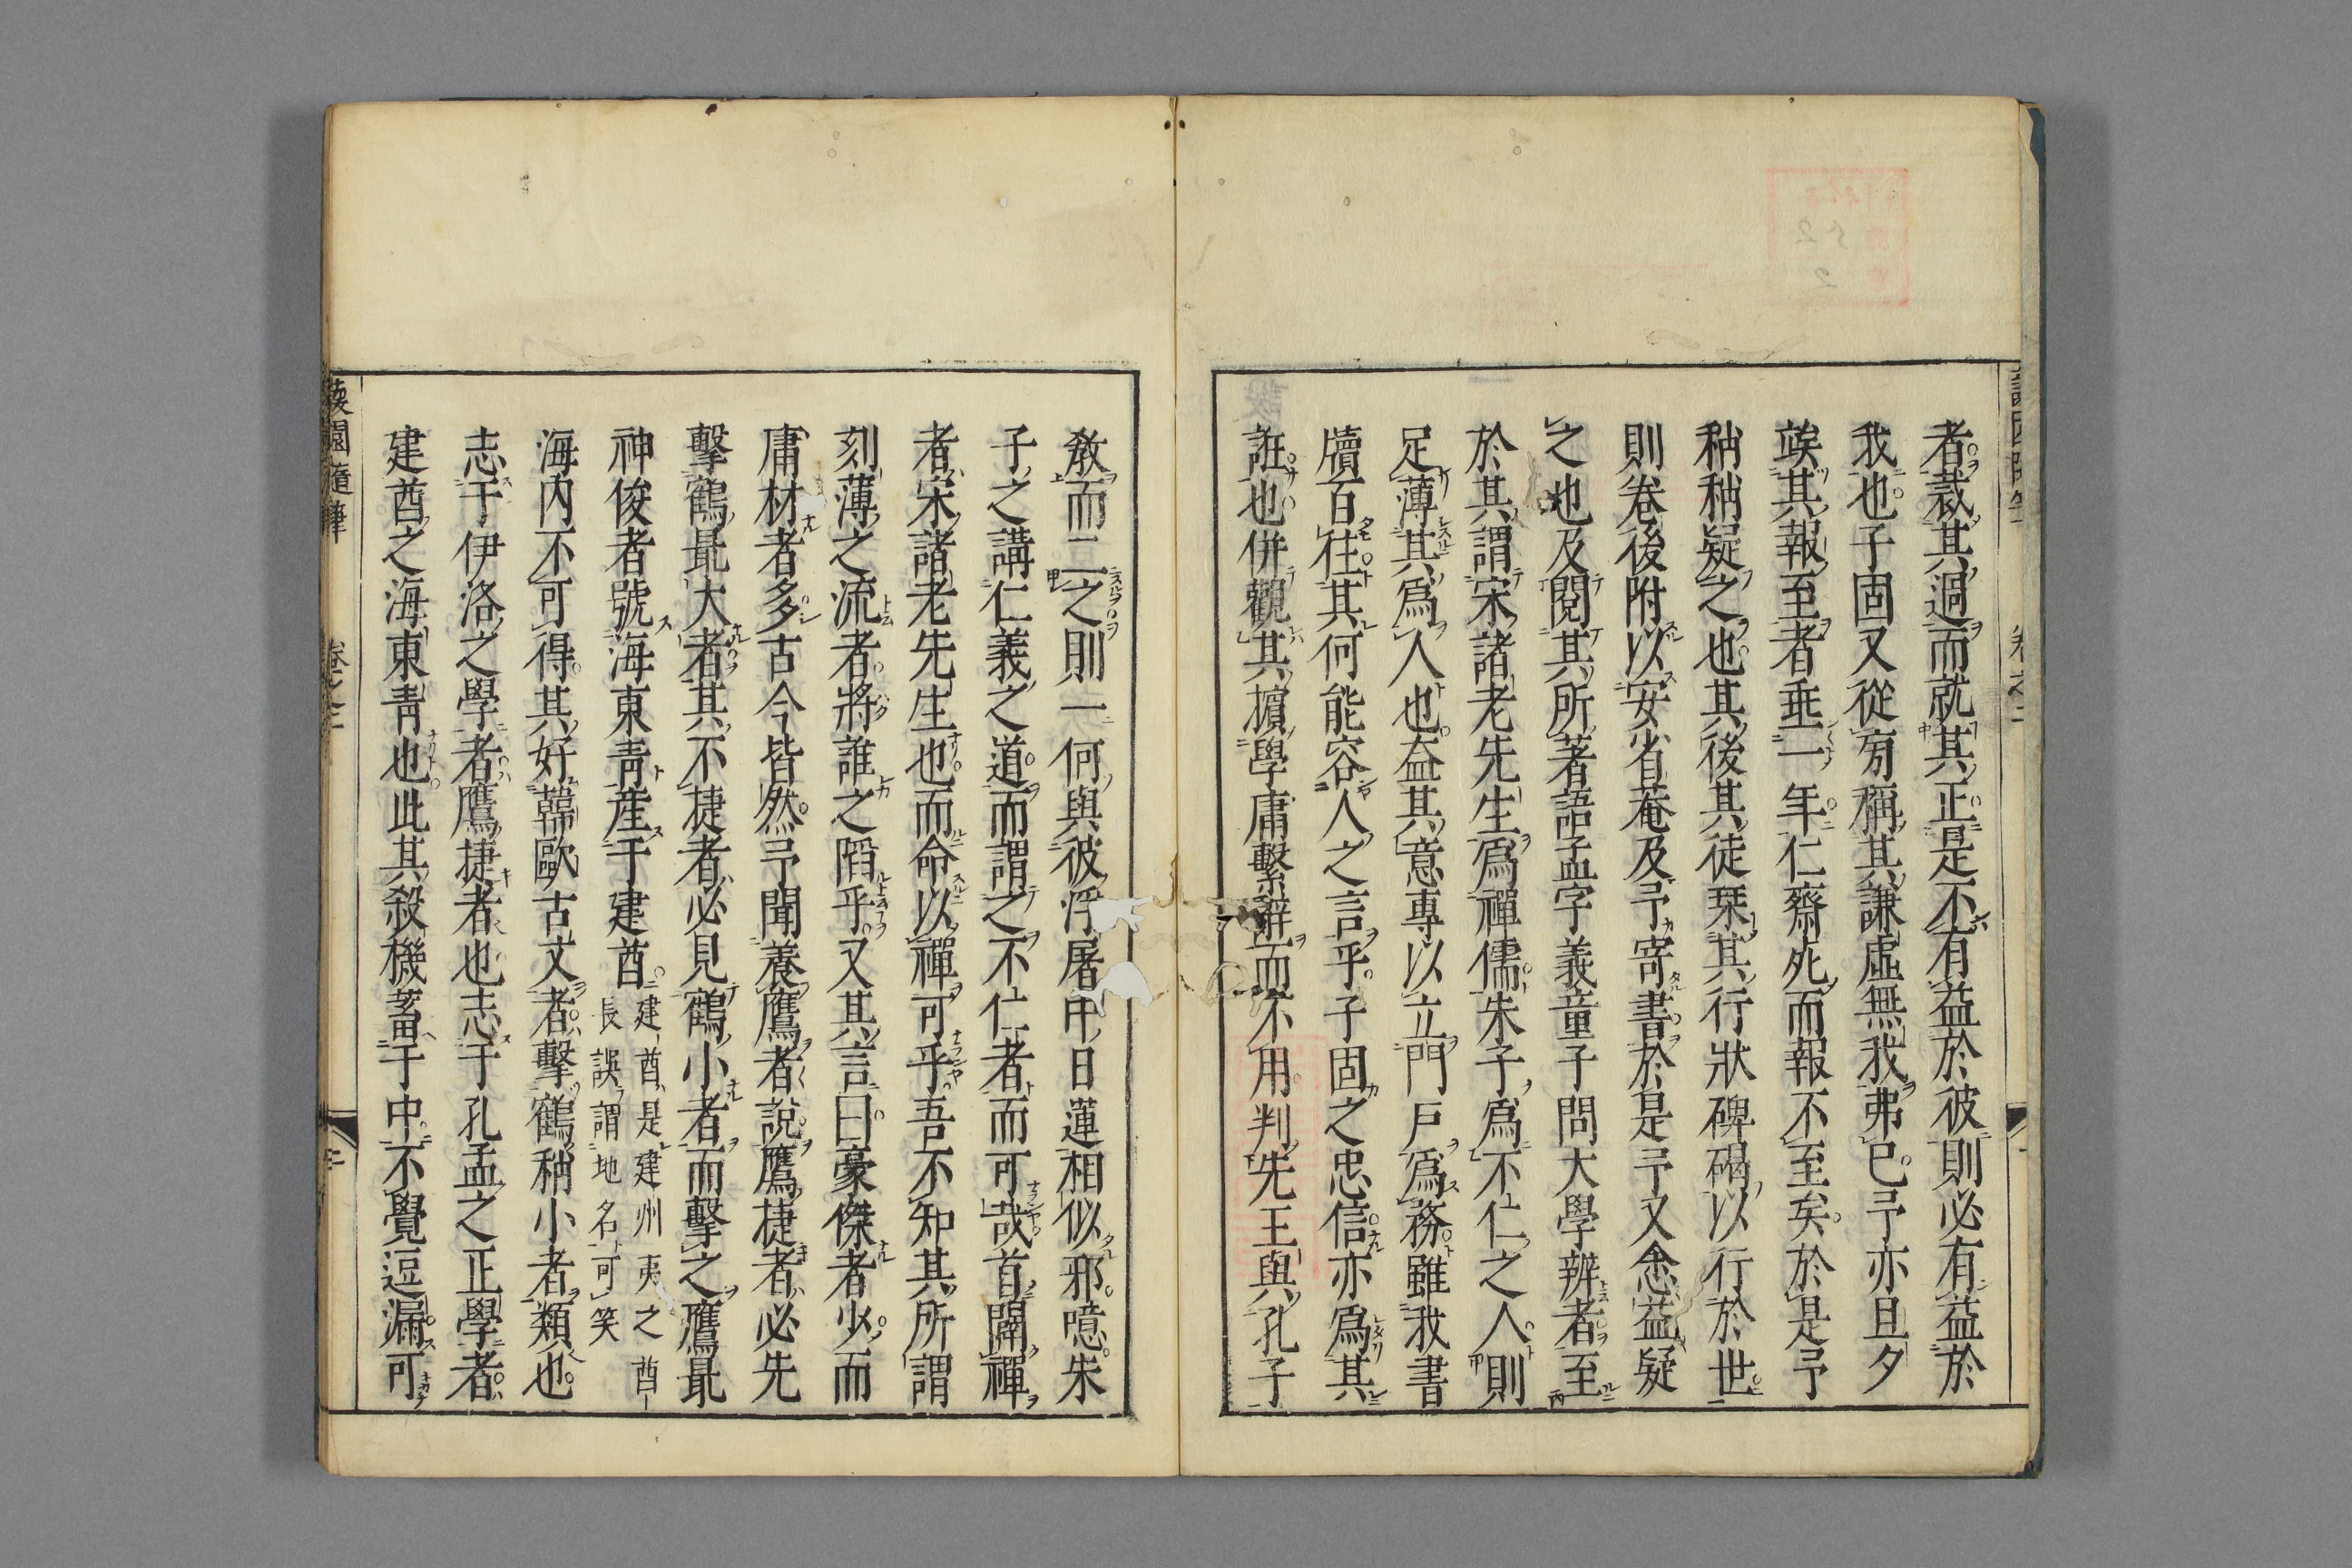 者裁其過而就其正是不有益於彼則必有益於
我也子固又從旁稱其謙虛無我弗已予亦旦夕
竢其報至者垂一年仁齋死而報不至矣於是予
稍稍疑之也其後其徒琹其行狀碑碣以行於世
則卷後附以安省菴及予寄書於是予又悆益疑
之也及閱其所著語孟字義童子問大學辨者至
於其謂宋諸老先生爲禪儒朱子爲不仁之人則
足薄其爲人也益其意專以立門戶爲務雖我書
牘百往其何能容人之言乎子固之忠信亦爲其
誑也併觀其擯學庸繫辭而不用判先王與孔子
教而二之則一何與彼浮屠中日蓮相似邪噫朱
子之講仁義之道而謂之不仁者而可哉首闢禪
者宋諸老先生也而命以禪可乎吾不知其所謂
刻薄之流者將誰之陷乎又其言曰豪傑者少而
庸材者多古今皆然予聞養鷹者說鷹捷者必先
擊鶴最大者其不捷者必見鶴小者而擊之鷹最
神俊者號海東青產于建酋
建酋是建州夷之酋
長誤謂地名可笑
海內不可得其好韓歐古文者擊鶴稍小者類也
志于伊洛之學者鷹捷者也志于孔孟之正學者
建酋之海東青也此其殺機蓄于中不覺逗漏可
蘐園隨筆 卷之二 二